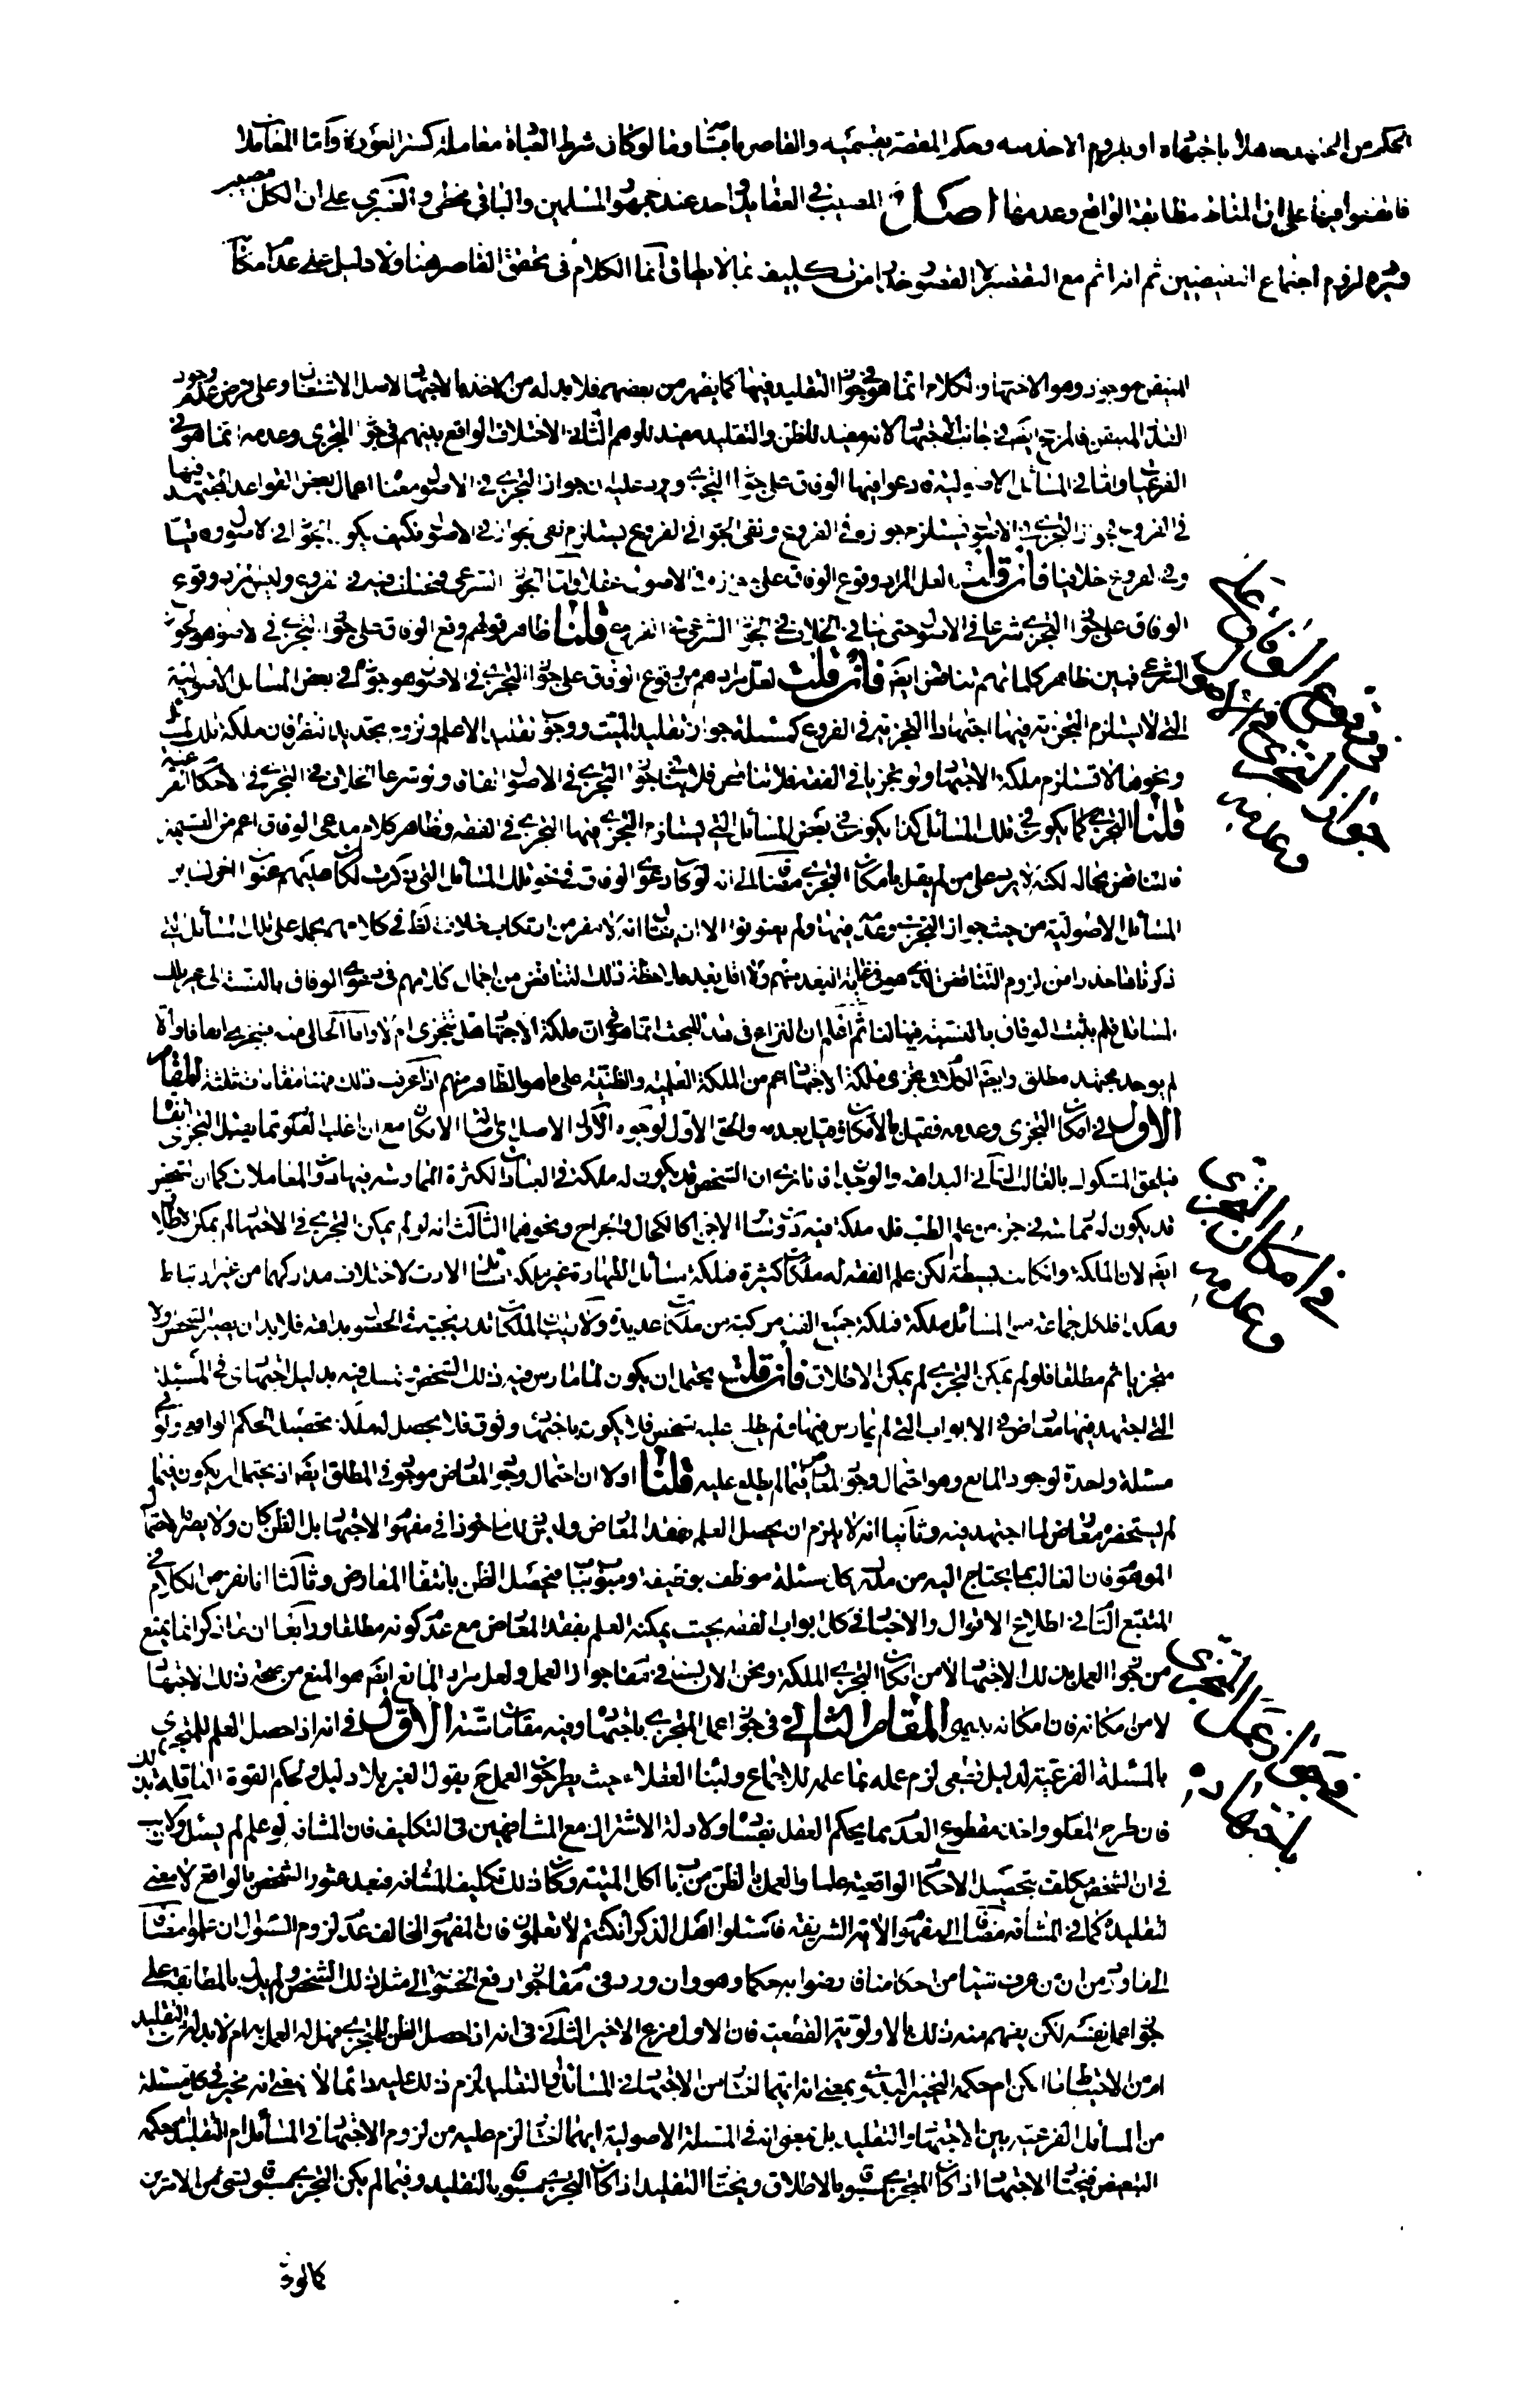 الحكم من المجتهد هذا باجتهاده او بلزوم الاخذ منه وحكم المقصر بقسميه والقاصر ما بينا وما لو كان شرط العباد معاملة كستر العورة واما المعاملا
فاتفقوا فيها على ان المناط مطابقة الواقع وعدمها اصل المصيب في العقايد واحد عند جمهور المسلمين والباقي مخطئ والعنبري على ان الكل مصيب
وفيه لزوم اجتماع النقيضين ثم انه اثم مع التقصير لا القصور حذرا من تكليف بما لا يطاق انما الكلام في تحقق القاصر هنا ولا دليل على عدم امكان
المتيقن موجود وهو الاجتهاد والكلام انما هو في جواز التقليد فيها كما يظهر من بعضهم فلا بد له من الاخذ بالاجتهاد لاصل الاشتغال وعلى فرض عدم وجود
القدر المتيقن فالمرجح ايضا في جانب الاجتهاد لانه مفيد للظن والتقليد مفيد للوهم الثاني الاختلاف الواقع بينهم في جواز التجزي وعدمه انما هو في
الفرعيات واما في المسائل الاصولية فادعوا فيها الوفاق على جواز التجزي ويرد عليه ان جواز التجزي في الاصول معناه اعمال بعض القواعد المجتهد فيها
في الفروع فجواز التجزي في الاصول يستلزم جوازه في الفروع ونفي الجواز في الفروع يستلزم نفي الجواز في الاصول فكيف يكون الجواز في الاصول وفاقيا
وفي الفروع خلافيا فان قلت لعل المراد وقوع الوفاق على جوازه في الاصول عقلا واما الجواز الشرعي فمختلف فيه في الفروع وليس المراد وقوع
الوفاق على جواز التجزي شرعا في الاصول حتى ينافي الخلاف في الجواز الشرعي في الفروع قلنا ظاهر قولهم وقع الوفاق على جواز التجزي في الاصول هو الجواز
الشرعي فبين ظاهر كلماتهم تناقض ايضا فان قلت لعل مرادهم من وقوع الوفاق على جواز التجزي في الاصول هو جوازه في بعض المسائل الاصولية
التي لا يستلزم التجزية فيها اجتهادا التجزية في الفروع كمسئلة جواز تقليد الميت ووجوب تقليد الاعلم ولزوم تجديد النظر فان ملكة تلك المسئلة
ونحوها لا تستلزم ملكة الاجتهاد ولو تجزيا في الفقه فلا تناقض فلا ينافي جواز التجزي في الاصول اتفاقا ولو شرعا الخلاف في التجزي في الاحكام الفرعية
قلنا التجزي كما يكون في تلك المسائل كذا يكون في بعض المسائل التي يستلزم التجزي فيها التجزي في الفقه وظاهر كلام مدعي الوفاق اعم من القسمين
فالتناقض بحاله لكنه لا يرد على من لم يقل بامكان التجزي مضافا الى انه لو كان دعوى الوفاق في خو تلك المسائل التي ذكرت لكان عليهم عنوان الخلاف في
المسائل الاصولية من حيث جواز التجزي وعدمه فيها ولم يعنونوا الا ان يقال انه لا مفر من ارتكاب خلاف الظ في كلامهم بحمله على تلك المسائل التي
ذكرناها حذرا من لزوم التناقض الذي هو في غاية البعد منهم ولا اقل بعد ملاحظة ذلك التناقض من اجمال كلامهم في دعوى الوفاق بالنسبة الى غير تلك
المسائل فلم يثبت الوفاق بالنسبة فيها لنا ثم اعلم ان النزاع في هذا المبحث انما هو في ان ملكة الاجتهاد هل تتجزى ام لا واما الحالي منه فيتجزى اتفاقا والا
لم يوجد مجتهد مطلق وايضا الكلام في تجزي ملكة الاجتهاد اعم من الملكة العلمية والظنية على ما هو الظاهر منهم اذا عرفت ذلك فهنا مقامات ثلثة المقام
الاول في امكان التجزي وعدمه فقيل بالامكان وقيل بعدمه والحق الاول لوجوه الاول الاصل اي اصالة الامكان مع ان اغلب العلوم مما يقبل التجزي ايضا
فيلحق المشكوك بالغالب الثاني البداهة والوجدان فانا نرى ان الشخص قد يكون له ملكة في العبادات لكثرة الممارسة فيها دون المعاملات كما ان شخصا
قد يكون له ممارسة في جزء من علم الطب فله ملكة فيه دون سائر الاجزاء كالكحال والجراح ونحوهما الثالث انه لو لم يمكن التجزي في الاجتهاد لم يمكن الاطلاق
ايضا لان الملكة وان كانت بسيطة لكن علم الفقه له ملكات كثيرة فملكة مسائل الطهارة غير ملكة مسائل الارث لاختلاف مداركهما من غير ارتباط
وهكذا فلكل جماعة من المسائل ملكة فملكة جميع الفقه مركبة من ملكات عديدة ولا ريب ان الملكات تدريجية الحصول بداهة فلا بد ان يصير الشخص اولا
متجزيا ثم مطلقا فلو لم يمكن التجزي لم يمكن الاطلاق فان قلت يحتمل ان يكون لما مارس فيه ذلك الشخص وتمسك فيه بدليل اجتهادي في المسئلة
التي اجتهد فيها معارض في الابواب التي لم يمارس فيها ولم يطلع عليه شخص فلا يكون باجتهاده وثوق فلا يحصل له ملكة تحصيل الحكم الواقعي ولو في
مسئلة واحدة لوجود المانع وهو احتمال وجود المعارض فيما لم يطلع عليه قلنا اولا ان احتمال وجود المعارض موجود في المطلق ايضا اذ يحتمل ان يكون فيما
لم يستحضره معارض لما اجتهد فيه وثانيا انه لا يلزم ان يحصل العلم بفقد المعارض وليس ذلك ماخوذا في مفهوم الاجتهاد بل الظن كاف ولا يضر الاحتمال
الموهوم فان الغالب مما يحتاج اليه من مدرك كل مسئلة موظف بوظيفة ومبوب ببابه فيحصل الظن بانتفاء المعارض وثالثا انا نفرض الكلام في
المتتبع التام في اطلاع الاقوال والاخبار في كل ابواب الفقه بحيث يمكنه العلم بفقد المعارض مع عدم كونه مطلقا ورابعا ان ما ذكر انما يمنع
من جواز العمل بذلك الاجتهاد لا من امكان التجزي الملكة ونحن الان لسنا في مقام جواز العمل ولعل مراد المانع ايضا هو المنع من صحة ذلك الاجتهاد
لا من امكانه فان امكانه بديهي المقام الثاني في جواز عمل المتجزي باجتهاده وفيه مقامات ستة الاول في انه اذا حصل العلم للمتجزي
بالمسئلة الفرعية لدليل قطعي لزم عمله بما علمه للاجماع ولبناء العقلاء حيث يطرحون العمل ح بقول الغير بلا دليل ولحكم القوة العاقلة بذلك
فان طرح المعلوم واخذ مقطوع العدم مما يحكم العقل بفساده ولادلة الاشتراك مع المشافهين في التكليف فان المشافه لو علم لم يسئل ولا ريب
في ان الشخص مكلف بتحصيل الاحكام الواقعية علما والعمل بالظن من باب اكل الميتة وكان ذلك تكليف المشافه فبعد عثور الشخص بالواقع لا معنى
لتقليده كما في المشافه مضافا الى مفهوم الاية الشريفة فاسئلوا اهل الذكر ان كنتم لا تعلمون فان المفهوم المخالف عدم لزوم السؤال ان علموا مضافا
الى ما ورد من ان من عرف شيئا من احكامنا فارضوا به حكما وهو وان ورد في مقام جواز رفع الخصومة الى مثل ذلك الشخص ولم يدل بالمطابقة على
جواز عمل نفسه لكن يفهم منه ذلك بالاولوية القطعية فان الاول فرع الاخير الثاني في انه اذا حصل الظن للمتجزي فهل له العمل به ام لا بد له من التقليد
ام من الاحتياط ما امكن ام حكمه التخيير البدوي بمعنى انه ايهما اختار من الاجتهاد في المسائل والتقليد لزم ذلك عليه دائما لا بمعنى انه مخير في كل مسئلة
من المسائل الفرعية بين الاجتهاد والتقليد بل بمعنى انه في المسئلة الاصولية ايهما اختار لزم عليه من لزوم الاجتهاد في المسائل ام التقليد ام حكمه
التبعيض فيختار الاجتهاد اذا كان التجزي مسبوقا بالاطلاق ويختار التقليد اذا كان التجزي مسبوقا بالتقليد وفيما لم يكن التجزي مسبوقا بشيء من الامرين
كما لو
في وقوع الوفاق على
جواز التجزي
وعدمه
في امكان التجزي
وعدمه
في جواز عمل المتجزي
باجتهاده